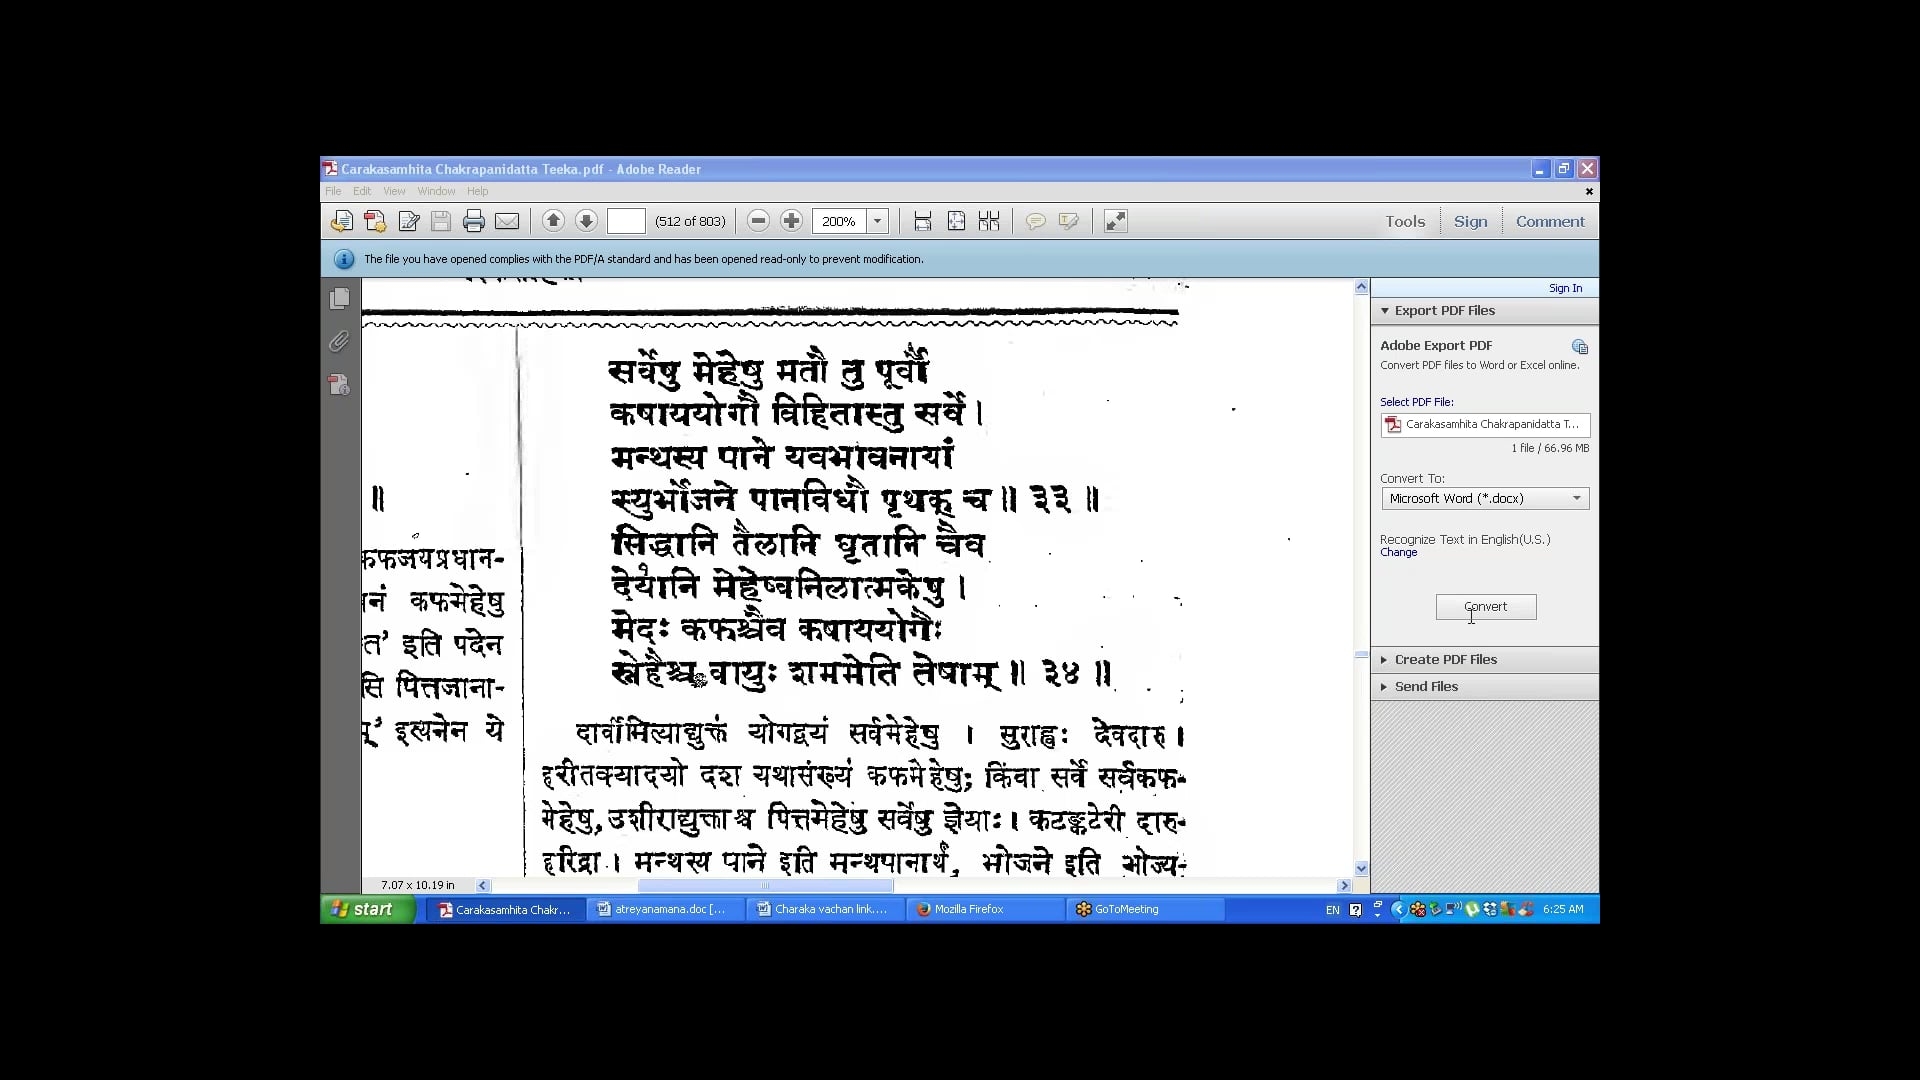 Carakasamhita Chakrapanidatta Teeka.pdf - Adobe Reader
File Edit View Window Help
(512 of 803) 200% Tools Sign Comment
The file you have opened complies with the PDF/A standard and has been opened read-only to prevent modification.
सर्वेषु मेहेषु मतौ तु पूर्वौ
कषाययोगौ विहितास्तु सर्वे ।
मन्थस्य पाने यवभावनायां
॥
स्युर्भोजने पानविधौ पृथक् च ॥ ३३ ॥
सिद्धानि तैलानि घृतानि चैव
कफजयप्रधान-
देयानि मेहेष्वनिलात्मकेषु ।
कफमेहेषु
मेदः कफश्चैव कषाययोगैः
इति पदेन
स्नेहैश्च वायुः शममेति तेषाम् ॥ ३४ ॥
पित्तजाना-
इत्यनेन ये
दार्वीमित्याद्युक्तं योगद्वयं सर्वमेहेषु । सुराह्वः देवदारु ।
हरीतक्यादयो दश यथासंख्यं कफमेहेषु; किंवा सर्वे सर्वकफ-
मेहेषु, उशीराद्युक्ताश्च पित्तमेहेषु सर्वेषु ज्ञेयाः । कटङ्कटेरी दारु-
हरिद्रा । मन्थस्य पाने इति मन्थपानार्थं, भोजने इति भोज्य-
7.07 x 10.19 in
Sign In
Export PDF Files
Adobe Export PDF
Convert PDF files to Word or Excel online.
Select PDF File:
Carakasamhita Chakrapanidatta T...
1 file / 66.96 MB
Convert To:
Microsoft Word (*.docx)
Recognize Text in English(U.S.)
Change
Convert
Create PDF Files
Send Files
start Carakasamhita Chakr... atreyanamana.doc [... Charaka vachan link.... Mozilla Firefox GoToMeeting EN 6:25 AM